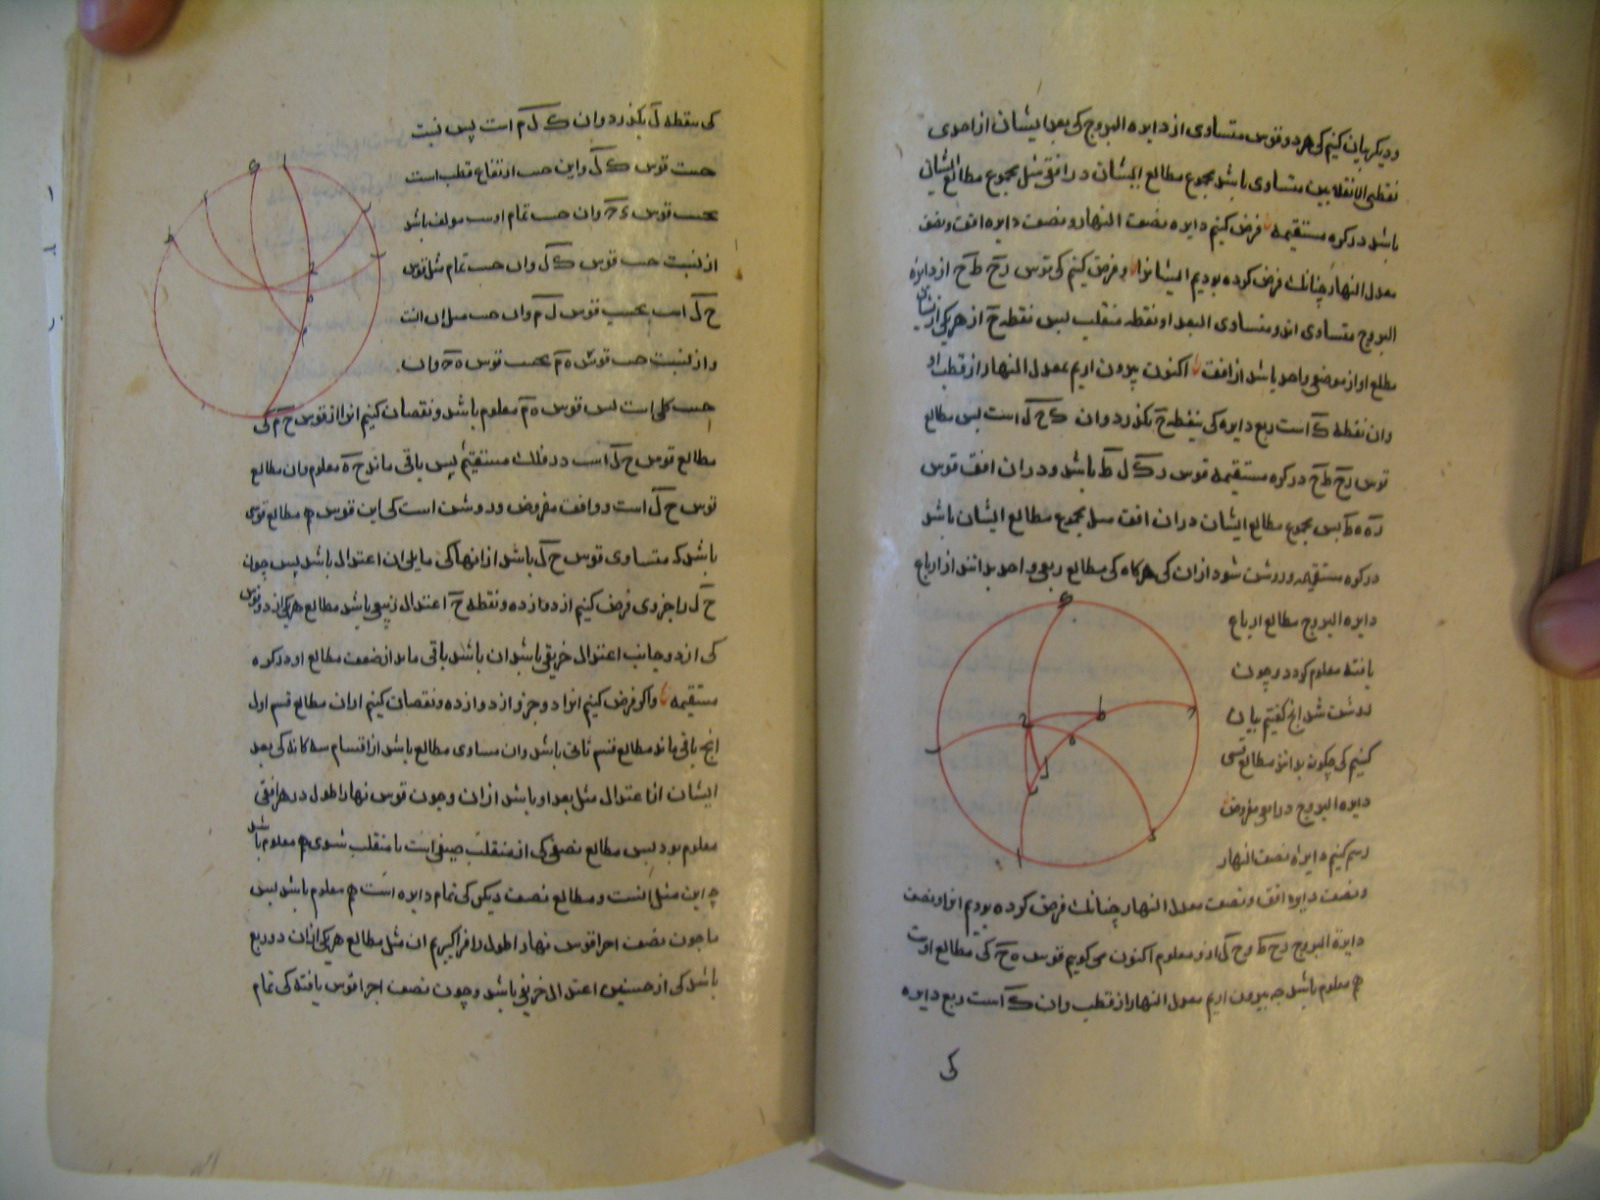 ودیکر بیان کنیم کی هر دو قوس متساوی از دایره البروج کی بعد ایشان از احدی
نقطتی الانقلابین متساوی باشد مجموع مطالع ایشان در افقی مثل مجموع مطالع ایشانی
باشد در کره مستقیمه فرض کنیم دایره نصف النهار و نصف دایره افق و نصف
معدل النهار چنانک فرض کرده بودیم ایشانرا و فرض کنیم کی قوس رح طح از دایرة
البروج متساوی اند و متساوی البعد از نقطه منقلب بس نقطه ح از هر یکی از ایشان
مطلع او از موضعی واحد باشد از افق اکنون بیرون اریم بمعدل النهار از قطب او
وان نقطه ک است ربع دایره کی بنقطه ح بکذرد وان ک ح ل است بس مطالع
قوس رح طح در کره مستقیمه قوس ر ل ط باشد و در ان افق قوس
ره ه ط بس مجموع مطالع ایشان در ان افق مثل مجموع مطالع ایشان باشد
در کره مستقیمه و روشن شود از ان کی هر کاه کی مطالع ربعی واحد بدانند از ارباع
دایره البروج مطالع ارباع
یافته معلوم کردد و چون
روشن شد انج کفتیم بیان
کنیم کی چکونه بدانند مطالع قسی
دایره البروج در افق مفروض
رسم کنیم دایرة نصف النهار
و نصف دایره افق و نصف معدل النهار چنانک فرض کرده بودیم انرا و نصف
دایرة البروج و ح ل از و معلوم اکنون می کویم قوس ه ح کی مطالع اوست
هم معلوم باشد چه بیرون اریم معدل النهار از قطب وان ک است ربع دایره
کی
کی بنقطه ل بکذرد وان ک ل م است پس نسبت
جیب قوس ک ل واین جیب ارتفاع قطب است
بجیب قوس ء ح وان جیب تمام اوست مولف باشد
از نسبت جیب قوس ک ل وان جیب تمام میل قوس
ح ل است بجیب قوس ل م وان جیب میل ان است
و از نسبت جیب قوس ه م بجیب قوس ه ح وان
جیب کلی است بس قوس ه م معلوم باشد و نقصان کنیم انرا از قوس ح م کی
مطالع قوس ح ل است در فلک مستقیم پس باقی ماند ح ه معلوم وان مطالع
قوس ح ل است در افق مفروض و روشن است کی این قوس هم مطالع قوسی
باشد که متساوی قوس ح ل باشد از انها کی مایلی ان اعتدال باشد پس چون
ح ل را جزوی فرض کنیم از دوازده و نقطه ح اعتدال ربیعی باشد مطالع هر یکی از دو قوس
کی از دو جانب اعتدال خریفی باشد ان باشد باقی ماند از ضعف مطالع او در کره
مستقیمه و اکر فرض کنیم انرا دو جزو از دوازده و نقصان کنیم از ان مطالع قسم اول
انج باقی ماند مطالع قسم ثانی باشد وان مساوی مطالع باشد از اقسام سه کانه کی بعد
ایشان از اعتدال مثل بعد او باشد از ان و چون قوس نهار اطول در هر افقی
معلوم بود بس مطالع نصفی کی از منقلب صیفی است تا منقلب شتوی هم معلوم باشد
چه این مثل انست و مطالع نصف دیکر کی تمام دایره است هم معلوم باشد بس
ما چون نصف اجزا قوس نهار اطول را فراکیریم ان مثل مطالع هر یکی از ان دو ربع
باشد کی از جنبتین اعتدال خریفی باشد و چون نصف اجزا قوس یافته کی تمام